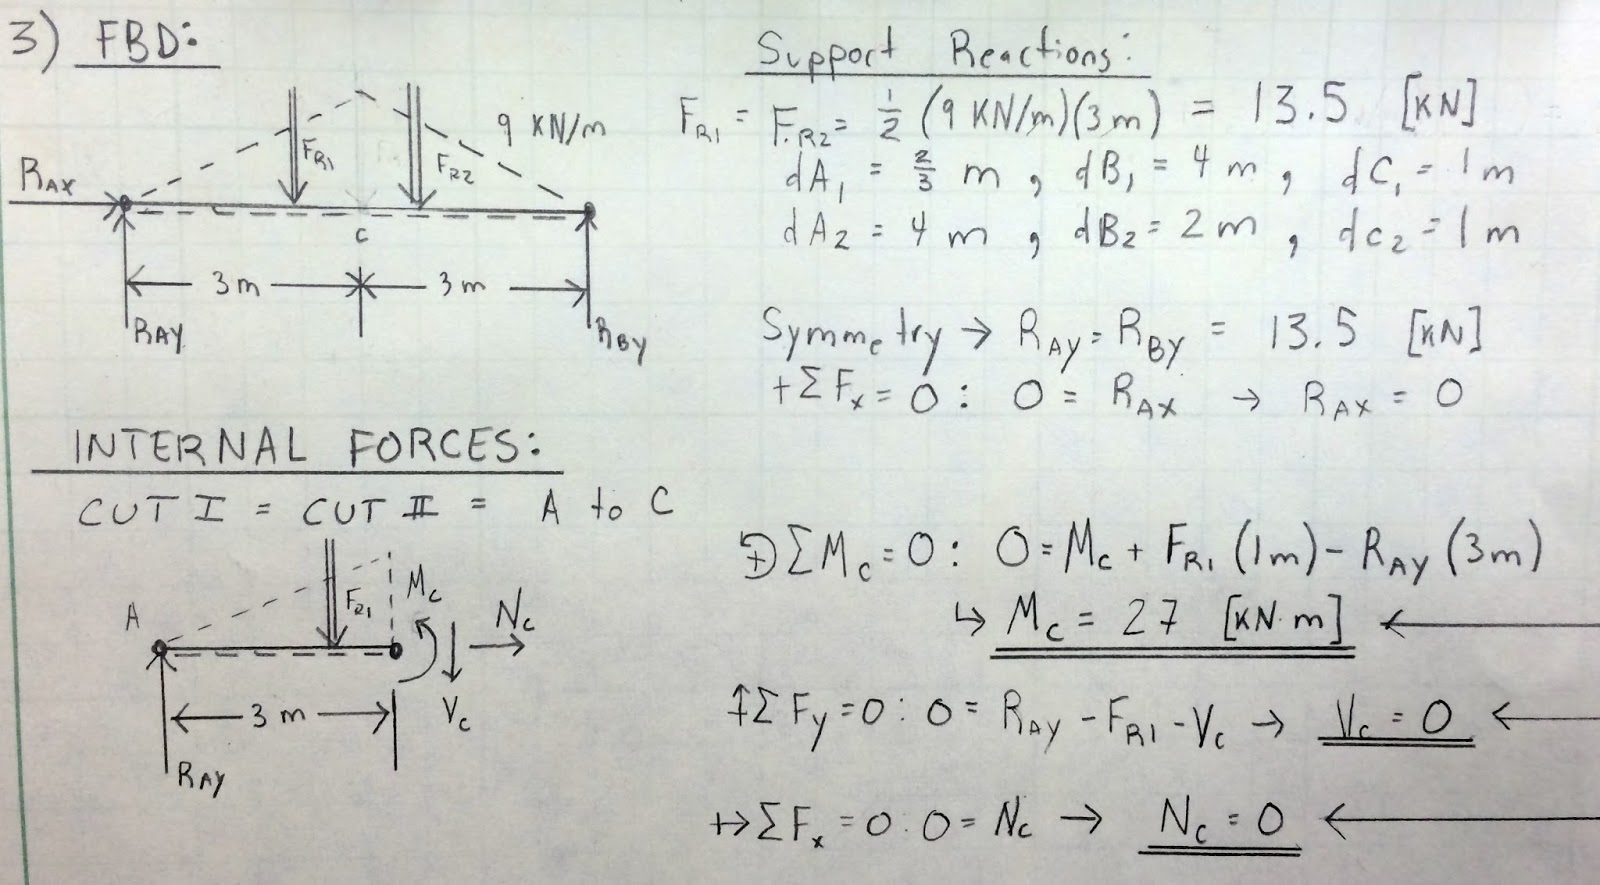 3) FBD:
R_AX
F_R1
F_R2
9 KN/m
C
3 m
3 m
R_AY
R_BY
Support Reactions:
F_R1 = F_R2 = 1/2 (9 KN/m)(3 m) = 13.5 [KN]
dA₁ = 2/3 m , dB₁ = 4 m , dC₁ = 1 m
dA₂ = 4 m , dB₂ = 2 m , dC₂ = 1 m
Symmetry → R_AY = R_BY = 13.5 [KN]
+ΣF_x = 0 : 0 = R_AX → R_AX = 0
INTERNAL FORCES:
CUT I = CUT II = A to C
A
F_R1
M_C
N_C
V_C
3 m
R_AY
↺+ ΣM_C = 0 : 0 = M_C + F_R1 (1m) - R_AY (3m)
↳ M_C = 27 [KN·m] ←
+↑ΣF_y = 0 : 0 = R_AY - F_R1 - V_C → V_C = 0 ←
+→ΣF_x = 0 : 0 = N_C → N_C = 0 ←